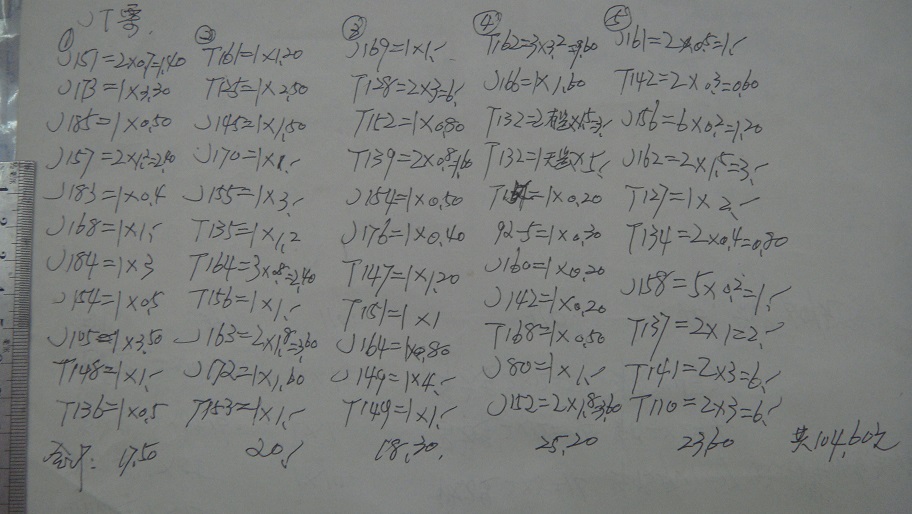 JT需
① ② ③ ④ ⑤
J151=2×0.7=1.40 T161=1×1.20 J169=1×1. T162=3×3.2=9.60 J161=2×0.5=1.
J173=1×3.30 T125=1×2.50 T128=2×3=6. J166=1×1.60 T142=2×0.3=0.60
J185=1×0.50 J145=1×1.50 T152=1×0.80 T132=2 ×1.5=3. J156=6×0.2=1.20
J157=2×1.2=2.40 J170=1×1. T139=2×0.8=1.60 T132=1 ×5. J162=2×1.5=3.
J183=1×0.4 J155=1×3. J154=1×0.50 =1×0.20 T127=1×2.
J168=1×1. T135=1×1.2 J176=1×0.40 92-5=1×0.30 T134=2×0.4=0.80
J184=1×3 T164=3×0.8=2.40 T147=1×1.20 J160=1×0.20 J158=5×0.2=1.
J154=1×0.5 T156=1×1. T151=1×1 J142=1×0.20 T137=2×1=2.
J105=1×3.50 J163=2×1.8=3.60 J164=1×0.80 T168=1×0.50 T141=2×3=6.
T148=1×1. J172=1×1.60 J149=1×4. J80=1×1. T110=2×3=6.
T136=1×0.5 T153=1×1. T149=1×1. J152=2×1.8=3.60
合计: 17.50 20. 18.30. 25.20 23.60 共104.60元